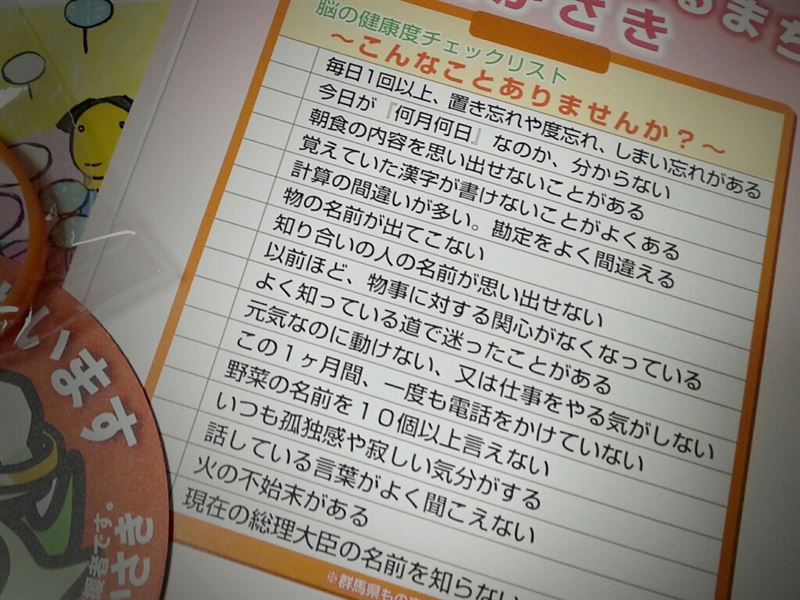 るまち
かさき
脳の健康度チェックリスト
～こんなことありませんか？～
毎日1回以上、置き忘れや度忘れ、しまい忘れがある
今日が『何月何日』なのか、分からない
朝食の内容を思い出せないことがある
覚えていた漢字が書けないことがよくある
計算の間違いが多い。勘定をよく間違える
物の名前が出てこない
知り合いの人の名前が思い出せない
以前ほど、物事に対する関心がなくなっている
よく知っている道で迷ったことがある
元気なのに動けない、又は仕事をやる気がしない
この１ヶ月間、一度も電話をかけていない
野菜の名前を１０個以上言えない
いつも孤独感や寂しい気分がする
話している言葉がよく聞こえない
火の不始末がある
現在の総理大臣の名前を知らない
※群馬県もの
います
です。
さき